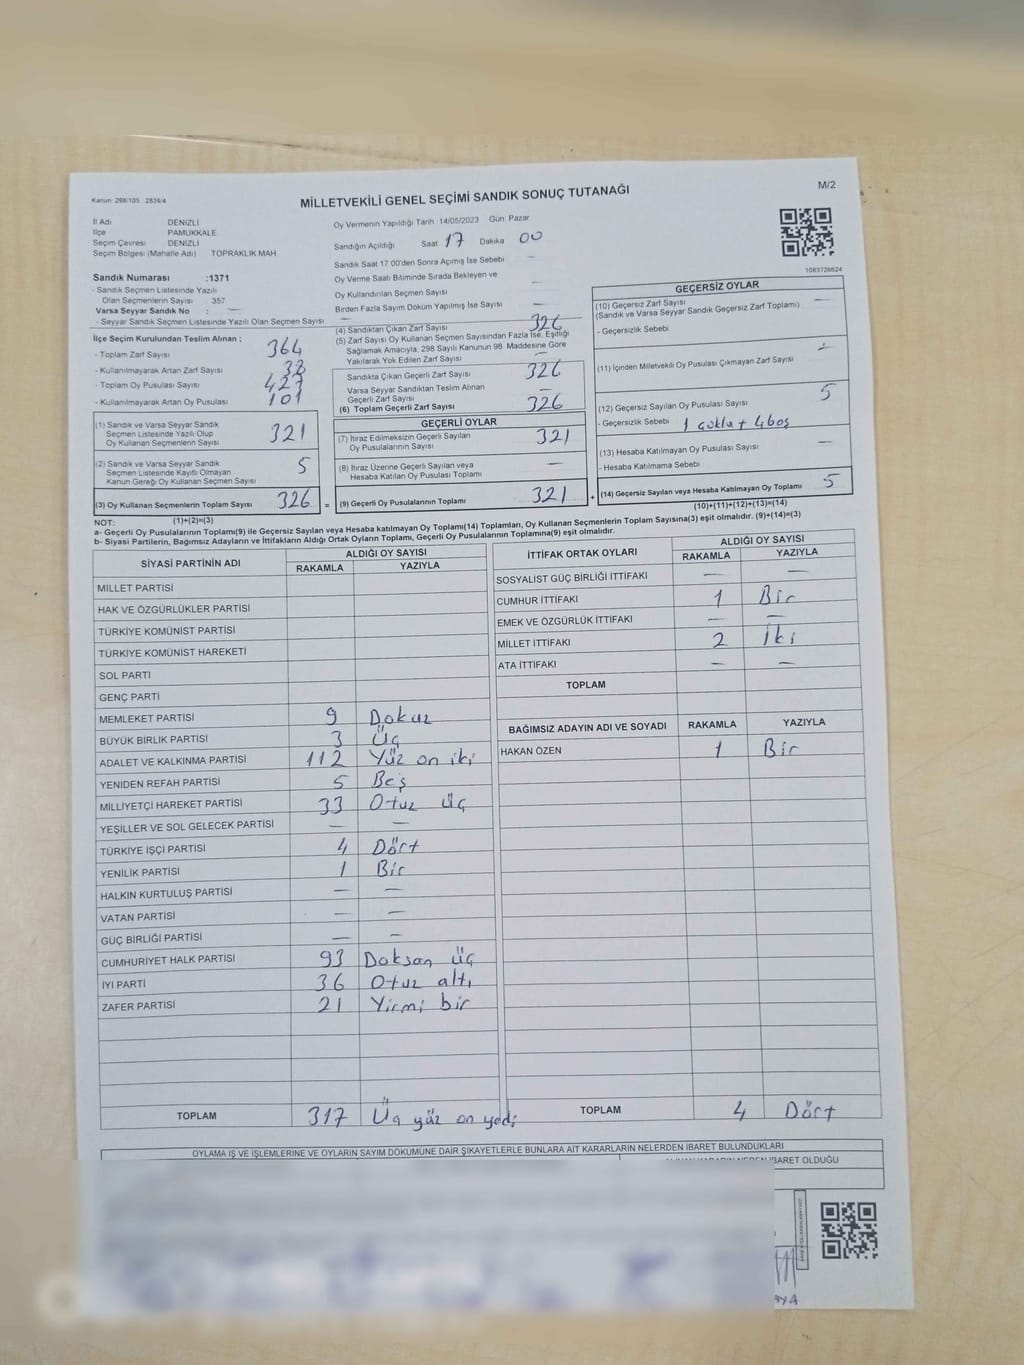 Kanun: 298/105 2839/4
MİLLETVEKİLİ GENEL SEÇİMİ SANDIK SONUÇ TUTANAĞI
M/2
İl Adı DENİZLİ
İlçe PAMUKKALE
Seçim Çevresi DENİZLİ
Seçim Bölgesi (Mahalle Adı) TOPRAKLIK MAH
Oy Vermenin Yapıldığı Tarih 14/05/2023 Gün. Pazar
Sandığın Açıldığı Saat 17 Dakika 00
Sandık Saat 17:00'den Sonra Açımış İse Sebebi —
Oy Verme Saati Bitiminde Sırada Bekleyen ve
Oy Kullandırılan Seçmen Sayısı —
Birden Fazla Sayım Döküm Yapılmış İse Sayısı —
1083726624
Sandık Numarası :1371
- Sandık Seçmen Listesinde Yazılı
Olan Seçmenlerin Sayısı 357
Varsa Seyyar Sandık No : —
- Seyyar Sandık Seçmen Listesinde Yazılı Olan Seçmen Sayısı —
İlçe Seçim Kurulundan Teslim Alınan ;
- Toplam Zarf Sayısı 364
- Kullanılmayarak Artan Zarf Sayısı 38
- Toplam Oy Pusulası Sayısı 427
- Kullanılmayarak Artan Oy Pusulası 101
(1) Sandık ve Varsa Seyyar Sandık
Seçmen Listesinde Yazılı Olup
Oy Kullanan Seçmenlerin Sayısı 321
(2) Sandık ve Varsa Seyyar Sandık
Seçmen Listesinde Kayıtlı Olmayan
Kanun Gereği Oy Kullanan Seçmen Sayısı 5
(3) Oy Kullanan Seçmenlerin Toplam Sayısı 326
(1)+(2)=(3)
(4) Sandıktan Çıkan Zarf Sayısı 326
(5) Zarf Sayısı Oy Kullanan Seçmen Sayısından Fazla İse, Eşitliği
Sağlamak Amacıyla, 298 Sayılı Kanunun 98. Maddesine Göre
Yakılarak Yok Edilen Zarf Sayısı —
Sandıkta Çıkan Geçerli Zarf Sayısı 326
Varsa Seyyar Sandıktan Teslim Alınan
Geçerli Zarf Sayısı —
(6) Toplam Geçerli Zarf Sayısı 326
GEÇERLİ OYLAR
(7) İtiraz Edilmeksizin Geçerli Sayılan
Oy Pusulalarının Sayısı 321
(8) İtiraz Üzerine Geçerli Sayılan veya
Hesaba Katılan Oy Pusulası Toplamı —
= (9) Geçerli Oy Pusulalarının Toplamı 321
GEÇERSİZ OYLAR
(10) Geçersiz Zarf Sayısı —
(Sandık ve Varsa Seyyar Sandık Geçersiz Zarf Toplamı)
- Geçersizlik Sebebi
(11) İçinden Milletvekili Oy Pusulası Çıkmayan Zarf Sayısı —
(12) Geçersiz Sayılan Oy Pusulası Sayısı 5
- Geçersizlik Sebebi 1 çoklu + 4 boş
(13) Hesaba Katılmayan Oy Pusulası Sayısı —
- Hesaba Katılmama Sebebi
+ (14) Geçersiz Sayılan veya Hesaba Katılmayan Oy Toplamı 5
(10)+(11)+(12)+(13)=(14)
NOT:
a- Geçerli Oy Pusulalarının Toplamı(9) ile Geçersiz Sayılan veya Hesaba katılmayan Oy Toplamı(14) Toplamları, Oy Kullanan Seçmenlerin Toplam Sayısına(3) eşit olmalıdır. (9)+(14)=(3)
b- Siyasi Partilerin, Bağımsız Adayların ve İttifakların Aldığı Ortak Oyların Toplamı, Geçerli Oy Pusulalarının Toplamına(9) eşit olmalıdır.
SİYASİ PARTİNİN ADI ALDIĞI OY SAYISI
RAKAMLA YAZIYLA
MİLLET PARTİSİ
HAK VE ÖZGÜRLÜKLER PARTİSİ
TÜRKİYE KOMÜNİST PARTİSİ
TÜRKİYE KOMÜNİST HAREKETİ
SOL PARTİ
GENÇ PARTİ
MEMLEKET PARTİSİ 9 Dokuz
BÜYÜK BİRLİK PARTİSİ 3 Üç
ADALET VE KALKINMA PARTİSİ 112 Yüz on iki
YENİDEN REFAH PARTİSİ 5 Beş
MİLLİYETÇİ HAREKET PARTİSİ 33 Otuz üç
YEŞİLLER VE SOL GELECEK PARTİSİ — —
TÜRKİYE İŞÇİ PARTİSİ 4 Dört
YENİLİK PARTİSİ 1 Bir
HALKIN KURTULUŞ PARTİSİ — —
VATAN PARTİSİ — —
GÜÇ BİRLİĞİ PARTİSİ — —
CUMHURİYET HALK PARTİSİ 93 Doksan üç
İYİ PARTİ 36 Otuz altı
ZAFER PARTİSİ 21 Yirmi bir
TOPLAM 317 Üç yüz on yedi
İTTİFAK ORTAK OYLARI ALDIĞI OY SAYISI
RAKAMLA YAZIYLA
SOSYALİST GÜÇ BİRLİĞİ İTTİFAKI — —
CUMHUR İTTİFAKI 1 Bir
EMEK VE ÖZGÜRLÜK İTTİFAKI — —
MİLLET İTTİFAKI 2 İki
ATA İTTİFAKI — —
TOPLAM
BAĞIMSIZ ADAYIN ADI VE SOYADI RAKAMLA YAZIYLA
HAKAN ÖZEN 1 Bir
TOPLAM 4 Dört
OYLAMA İŞ VE İŞLEMLERİNE VE OYLARIN SAYIM DÖKÜMÜNE DAİR ŞİKAYETLERLE BUNLARA AİT KARARLARIN NELERDEN İBARET BULUNDUKLARI
İBARET OLDUĞU